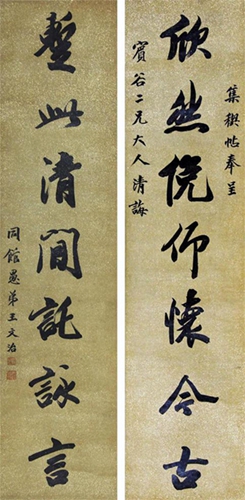 集禊帖奉呈
欣然俛仰懷今古
賓谷二兄大人清誨
暫此清閒託詠言
同館愚弟王文治